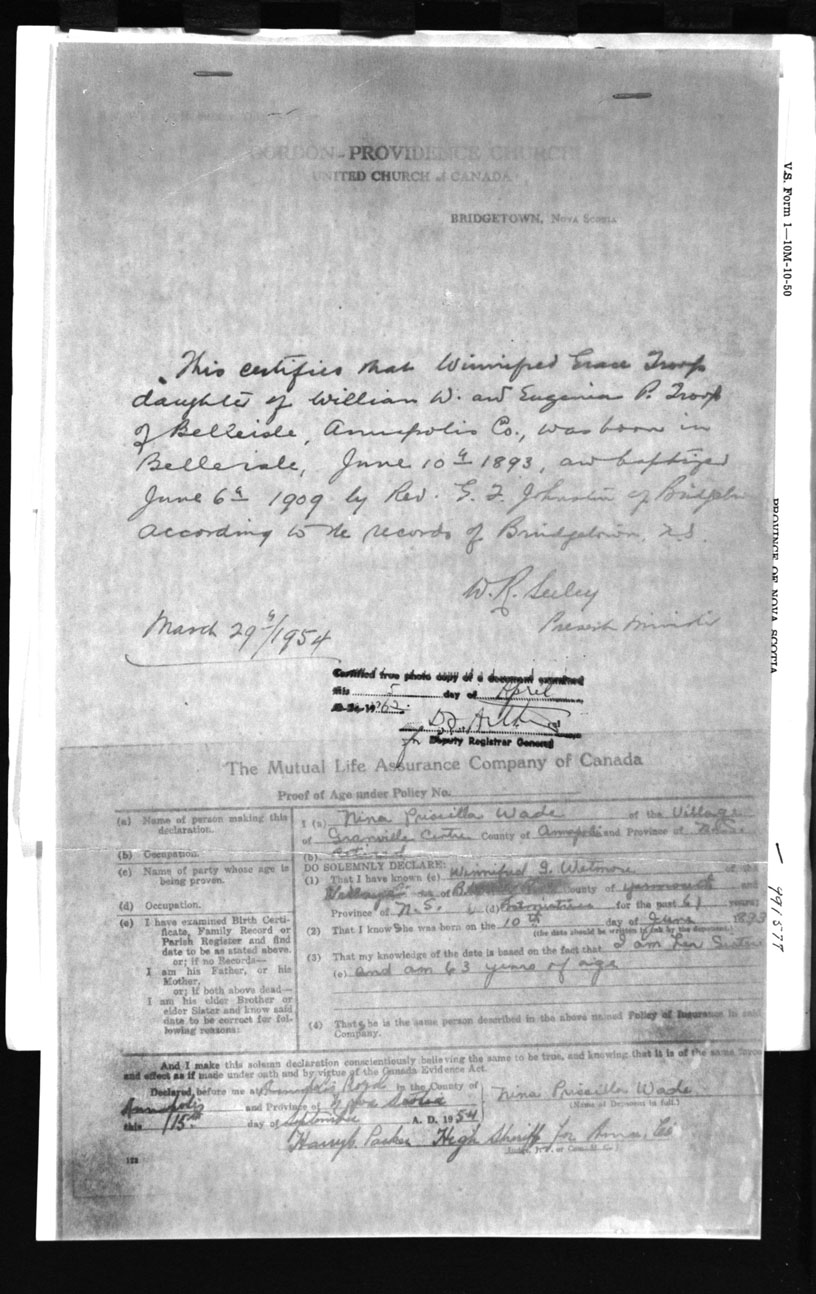 GORDON-PROVIDENCE CHURCH
UNITED CHURCH of CANADA
BRIDGETOWN, NOVA SCOTIA
V.S. Form 1—10M-10-50
This certifies that Winnifred Grace Troop
daughter of William W. and Eugenia P. Troop
of Belleisle, Annapolis Co., was born in
Belleisle, June 10th 1893, and baptized
June 6th 1909 by Rev. G. F. Johnston of
according to the records of Bridgetown, N.S.
W. R. Seeley
Present Minister
March 29th/1954
PROVINCE OF NOVA SCOTIA
Certified true photo copy of a document examined
this 5 day of April
19 62.
for Deputy Registrar General
The Mutual Life Assurance Company of Canada
Proof of Age under Policy No.
(a) Name of person making this
declaration.
(b) Occupation.
(c) Name of party whose age is
being proven.
(d) Occupation.
(e) I have examined Birth Certi-
ficate, Family Record or
Parish Register and find
date to be as stated above.
or; if no Records—
I am his Father, or his
Mother,
or; if both above dead—
I am his elder Brother or
elder Sister and know said
date to be correct for fol-
lowing reasons:
I (a) Nina Priscilla Wade of the Village
of Granville Centre County of Annapolis and Province of
(b) Retired
DO SOLEMNLY DECLARE:
(1) That I have known (c) Winnifred G. Wetmore of
County of Yarmouth and
Province of N.S. (d) for the past 61 years;
(2) That I know she was born on the 10th day of June 1893
(the date should be written in ink by the deponent.)
(3) That my knowledge of the date is based on the fact that I am her Sister
(e) and am 63 years of age
(4) That she is the same person described in the above named Policy of Insurance in said
Company.
991577
And I make this solemn declaration conscientiously believing the same to be true, and knowing that it is of the same force
and effect as if made under oath and by virtue of the Canada Evidence Act.
Declared before me at Annapolis Royal in the County of
Annapolis and Province of Nova Scotia
this 15th day of September A. D. 1954
Nina Priscilla Wade
(Name of Deponent in full.)
Harry B. Parker High Sheriff for Anna. Co